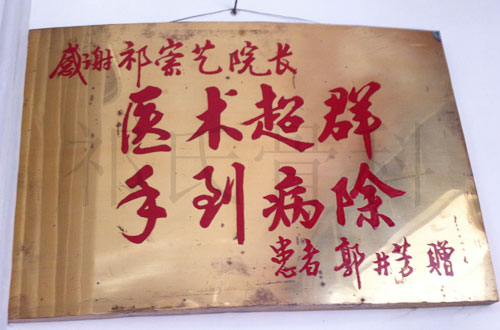 感谢祁崇艺院长
医术超群
手到病除
患者 郭井芳 赠
祁氏骨科